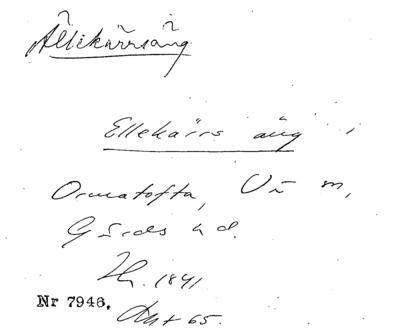 Ällikärrsäng
Ellekärrs äng
Ormatofta, Vä m,
Gärds hd.
1841
Nr 7946.
Akt 65.